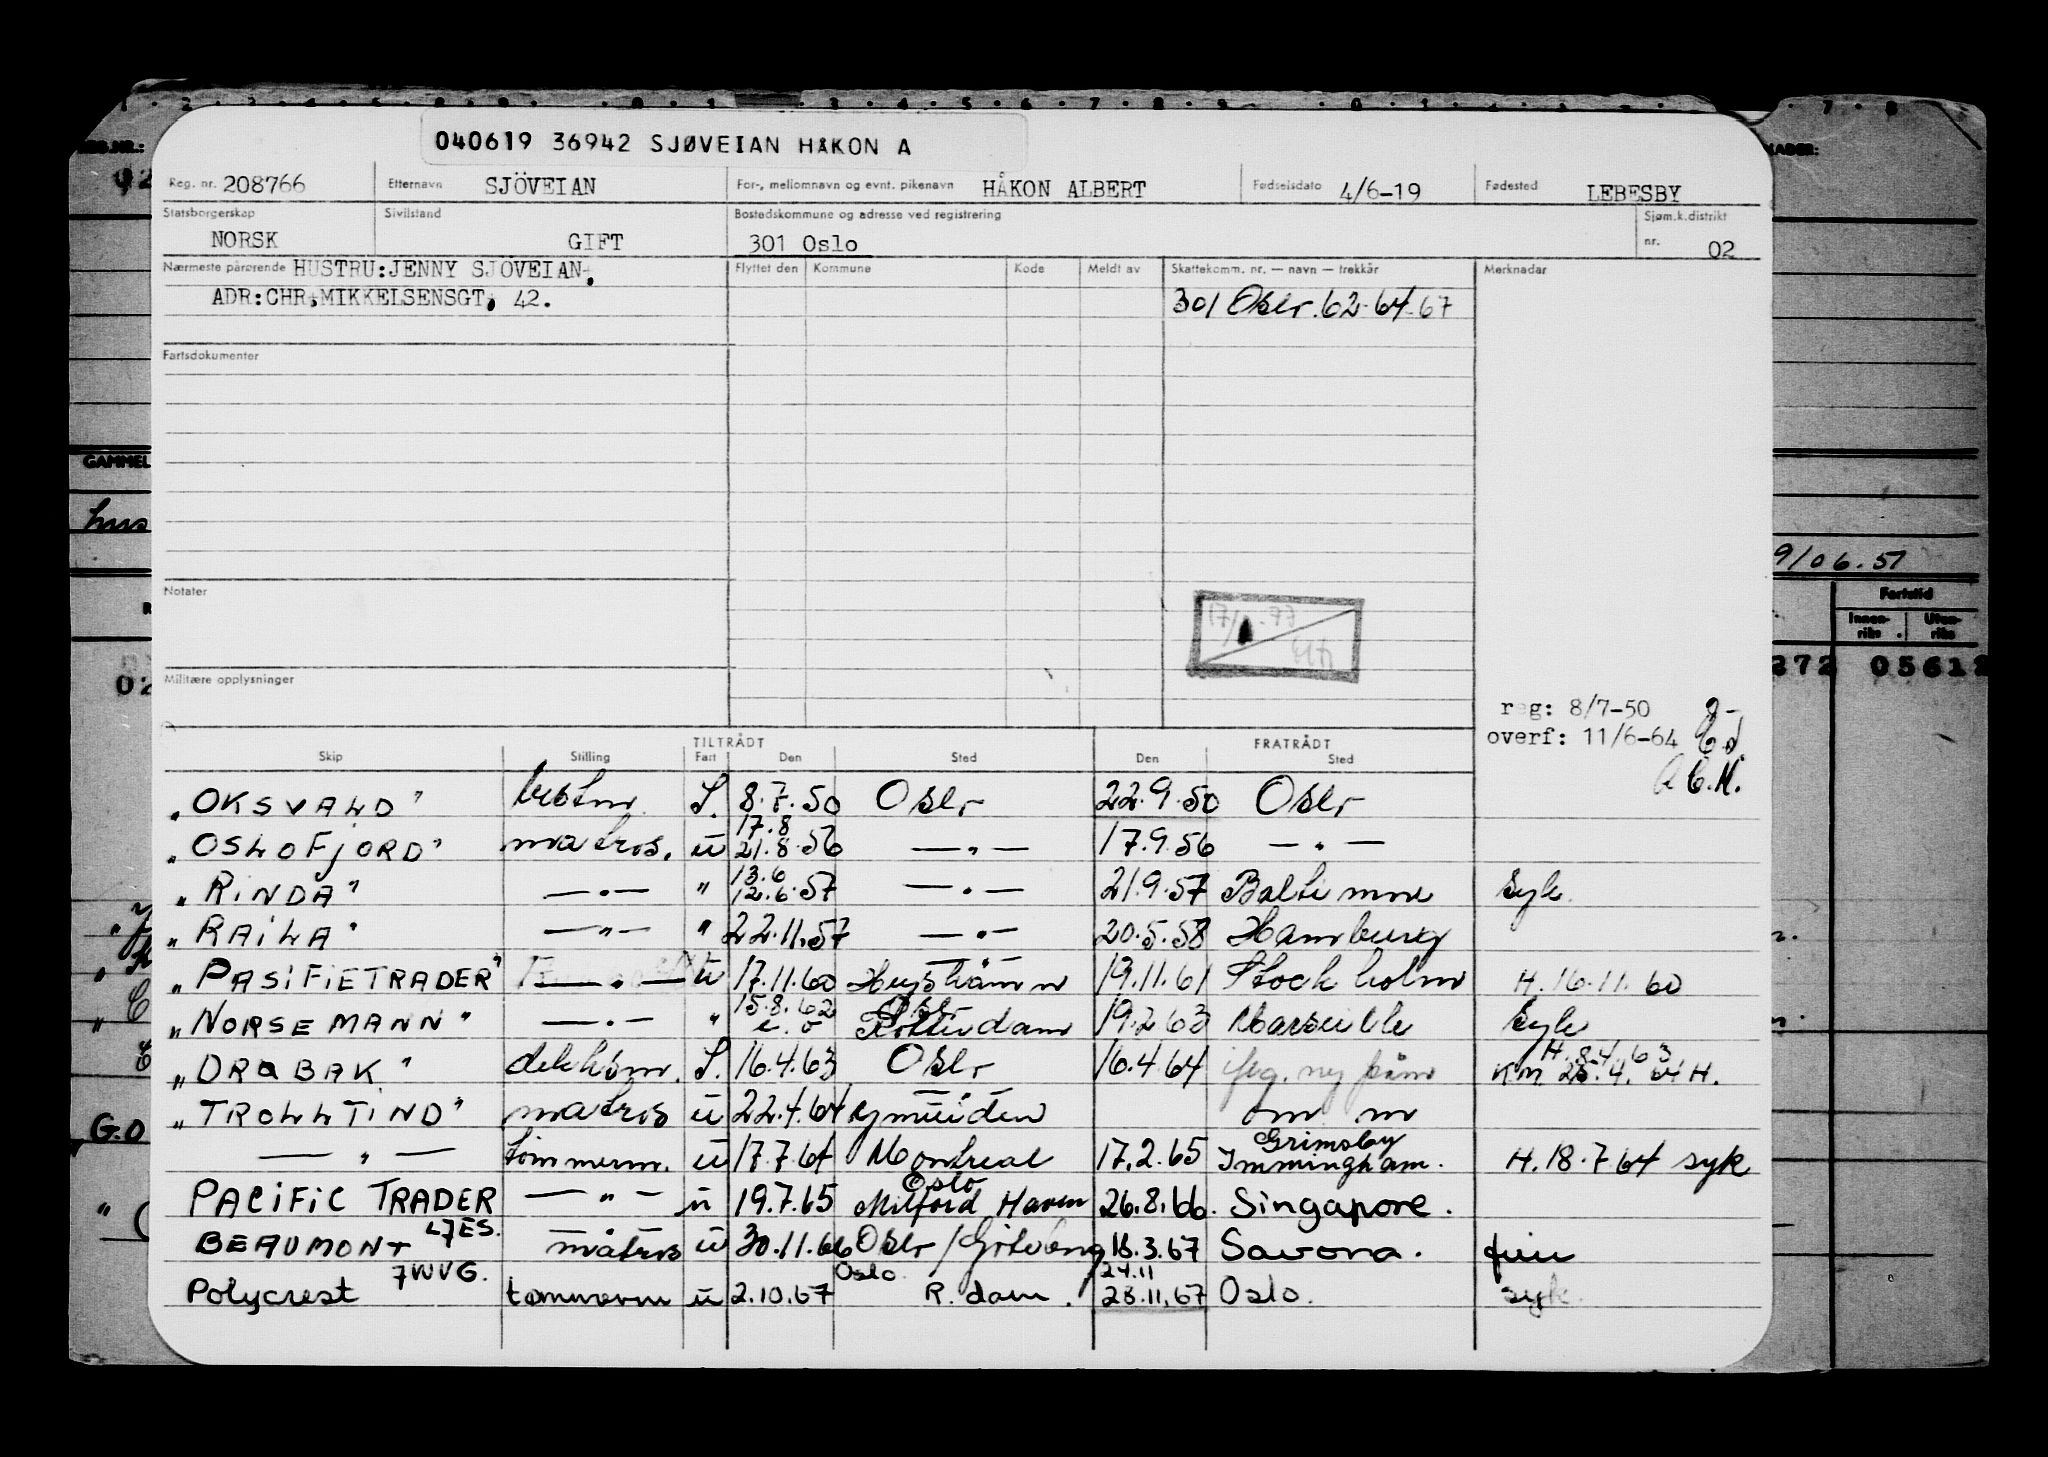 040619 36942 SJØVEIAN HÅKON A
Reg. nr. 208766 Etternavn SJÖVEIAN For-, mellomnavn og evnt. pikenavn HÅKON ALBERT Fødselsdato 4/6-19 Fødested LEBESBY
Statsborgerskap NORSK Sivilstand GIFT Bostedskommune og adresse ved registrering 301 Oslo Sjøm.k.distrikt nr. 02
Nærmeste pårørende HUSTRU:JENNY SJÖVEIAN, Flyttet den Kommune Kode Meldt av Skattekomm. nr. — navn — trekkår Merknader
ADR:CHR,MIKKELSENSGT, 42. 301 Oslo. 62-64-67
Fartsdokumenter
Notater
Militære opplysninger
reg: 8/7-50
overf: 11/6-64
TILTRÅDT FRATRÅDT
Skip Stilling Fart Den Sted Den Sted
"OKSVALD" 8.7.50 Oslo 22.9.50 Oslo
"OSLOFJORD" matros. u 17.8 21.8.56 —"— 17.9.56 —"—
"RINDA" —"— " 13.6 12.6.57 —"— 21.9.57 Baltimore Syk.
"RAILA" —"— " 22.11.57 —"— 20.5.58 Hamburg
"PASIFIETRADER" —"— u 17.11.60 19.11.61 Stockholm H.16.11.60
"NORSEMANN" —"— " 15.8.62 Oslo Rotterdam 19.2.63 Marseille Syk
"DRØBAK" S. 16.4.63 Oslo 16.4.64 H. 8.4.63
"TROLLTIND" matros u 22.4.64 Ymuiden
—"— tømmerm. u 17.7.64 Montreal 17.2.65 Grimsby Immingham. H.18.7 64 syk
PACIFIC TRADER —"— u 19.7.65 Oslo Milford Haven 26.8.66. Singapore.
BEAUMONT LJES. matros u 30.11.66 Oslo/Göteborg 18.3.67 Savona.
Polycrest 7WVG. tømmerm u 2.10.67 Oslo R.dam. 24.11 28.11.67 Oslo. syk.
GAMMEL
9/06.51
Fartstid
Innen-riks Uten-riks
272 05612